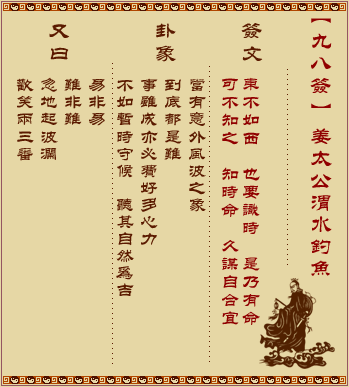 【九八簽】 姜太公渭水釣魚
簽文
東不如西 也要識時 是乃有命
可不知之 知時命 久謀自合宜
卦象
當有意外風波之象
到底都是難
事雖成亦必費好多心力
不如暫時守候 聽其自然爲吉
又曰
易非易
難非難
忽地起波瀾
歡笑兩三番